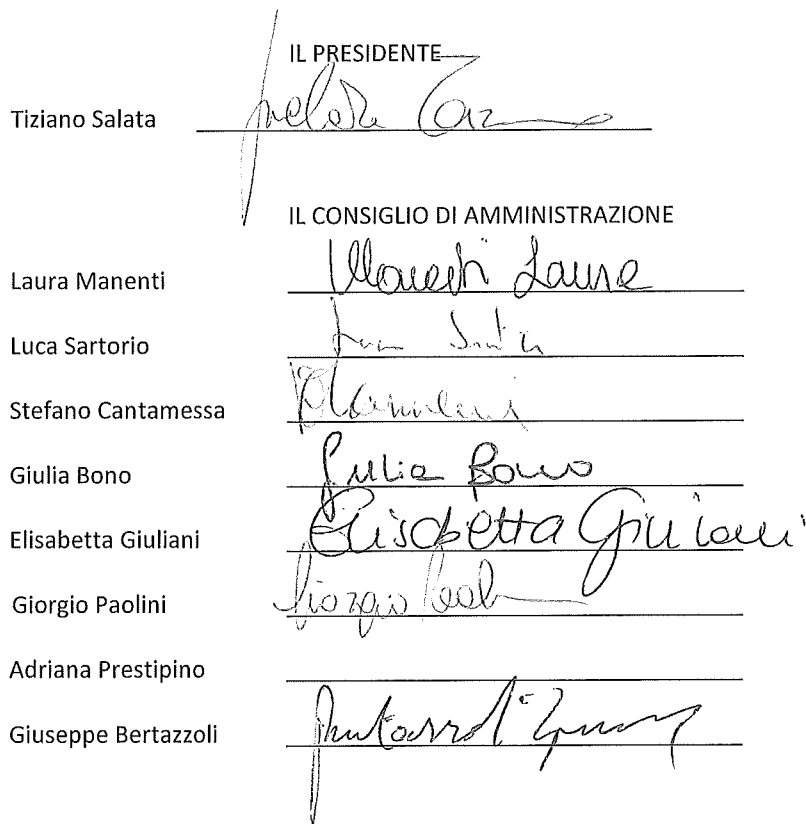 IL PRESIDENTE
Tiziano Salata
IL CONSIGLIO DI AMMINISTRAZIONE
Laura Manenti Manenti Laura
Luca Sartorio
Stefano Cantamessa
Giulia Bono Giulia Bono
Elisabetta Giuliani Elisabetta Giuliani
Giorgio Paolini Giorgio
Adriana Prestipino
Giuseppe Bertazzoli